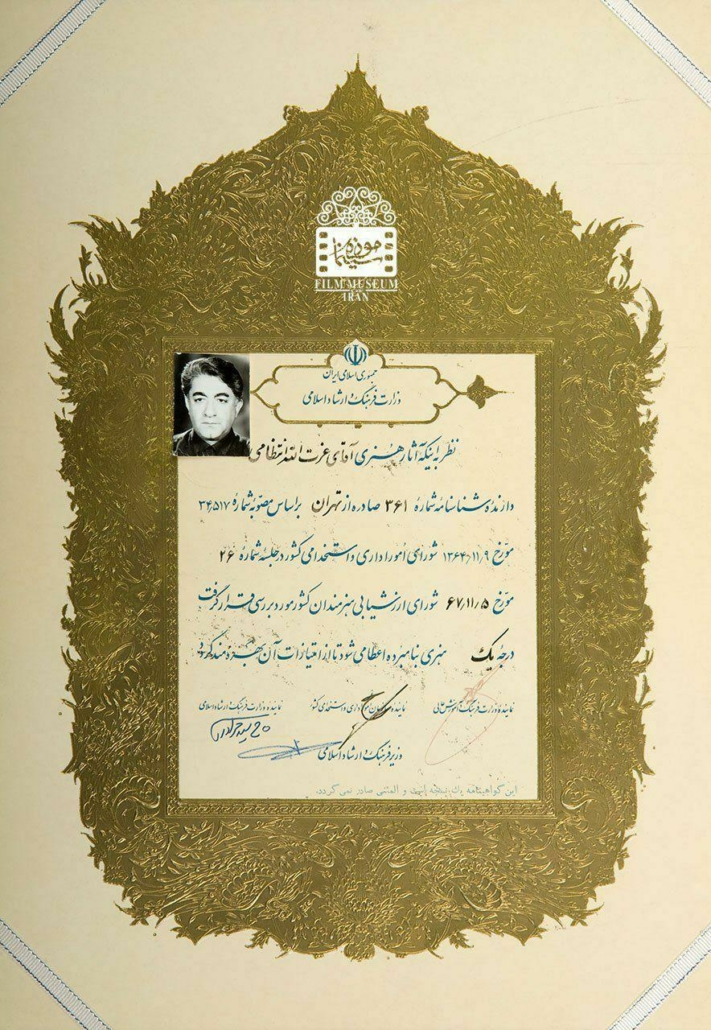 موزه سینما
FILM MUSEUM
IRAN
جمهوری اسلامی ایران
وزارت فرهنگ و ارشاد اسلامی
نظر به اینکه آثار هنری آقای عزت الله انتظامی
دارنده شناسنامه شماره ۳۶۱ صادره از تهران براساس مصوبه شماره ۳۴٫۵۱۷
مورخ ۱۳۶۴/۱۱/۹ شورای امور اداری و استخدامی کشور در جلسه شماره ۲۶
مورخ ۶۷/۱۱/۵ شورای ارزشیابی هنرمندان کشور مورد بررسی قرار گرفت
درجه یک هنری بنامبرده اعطا می شود تا از امتیازات آن بهره مند گردد
نماینده وزارت فرهنگ و آموزش عالی نماینده سازمان امور اداری و استخدامی کشور نماینده وزارت فرهنگ و ارشاد اسلامی
وزیر فرهنگ و ارشاد اسلامی
این گواهینامه یک نسخه است و المثنی صادر نمی گردد.